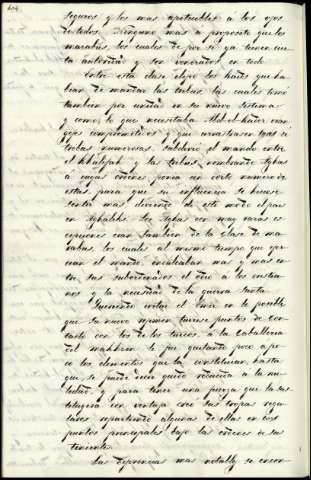 604
seguros y los mas apetecibles a los ojos
de todos. Ninguno mas a proposito que los
marabus, los cuales de por si ya tienen cier-
ta autoridad y son venerados en todo
Entre esta clase elijio los kaids que ha-
bian de mandar las tribus, las cuales tomó
tambien por unidad en su nuevo sistema
y como lo que necesitaba Abd-el-kader eran
gefes comprometidos y que arrastrasen tras si
tribus numerosas, subdividió el mando entre
el khalifah y las tribus, nombrando Aghas
a cuyas ordenes ponia un corto numero de
estas, para que su influencia se hiciese
sentir mas dividiendo de este modo el pais
en Aghaliks. Los Aghas con muy raras es-
cepciones eran tambien de la clase de ma-
rabus, los cuales al mismo tiempo que ejer-
cian el mando, inculcaban mas y mas en-
tre sus subordinados el odio a los cristia-
nos y la necesidad de la guerra santa.
Queriendo evitar el Emir en lo posible
que su nuevo regimen tuviese puntos de con-
tacto con los de los turcos, a la caballeria
del makhzen le fue quitando poco a po-
co los elementos que la constituian, hasta
que se puede decir quedó reducida a la nu-
lidad, y para tener una fuerza que la sus-
tituyera con ventaja creó las tropas regu-
lares repartiendo algunas de ellas en los
puntos principales bajo las ordenes de sus
tenientes.
Las diferencias mas notables se encon-